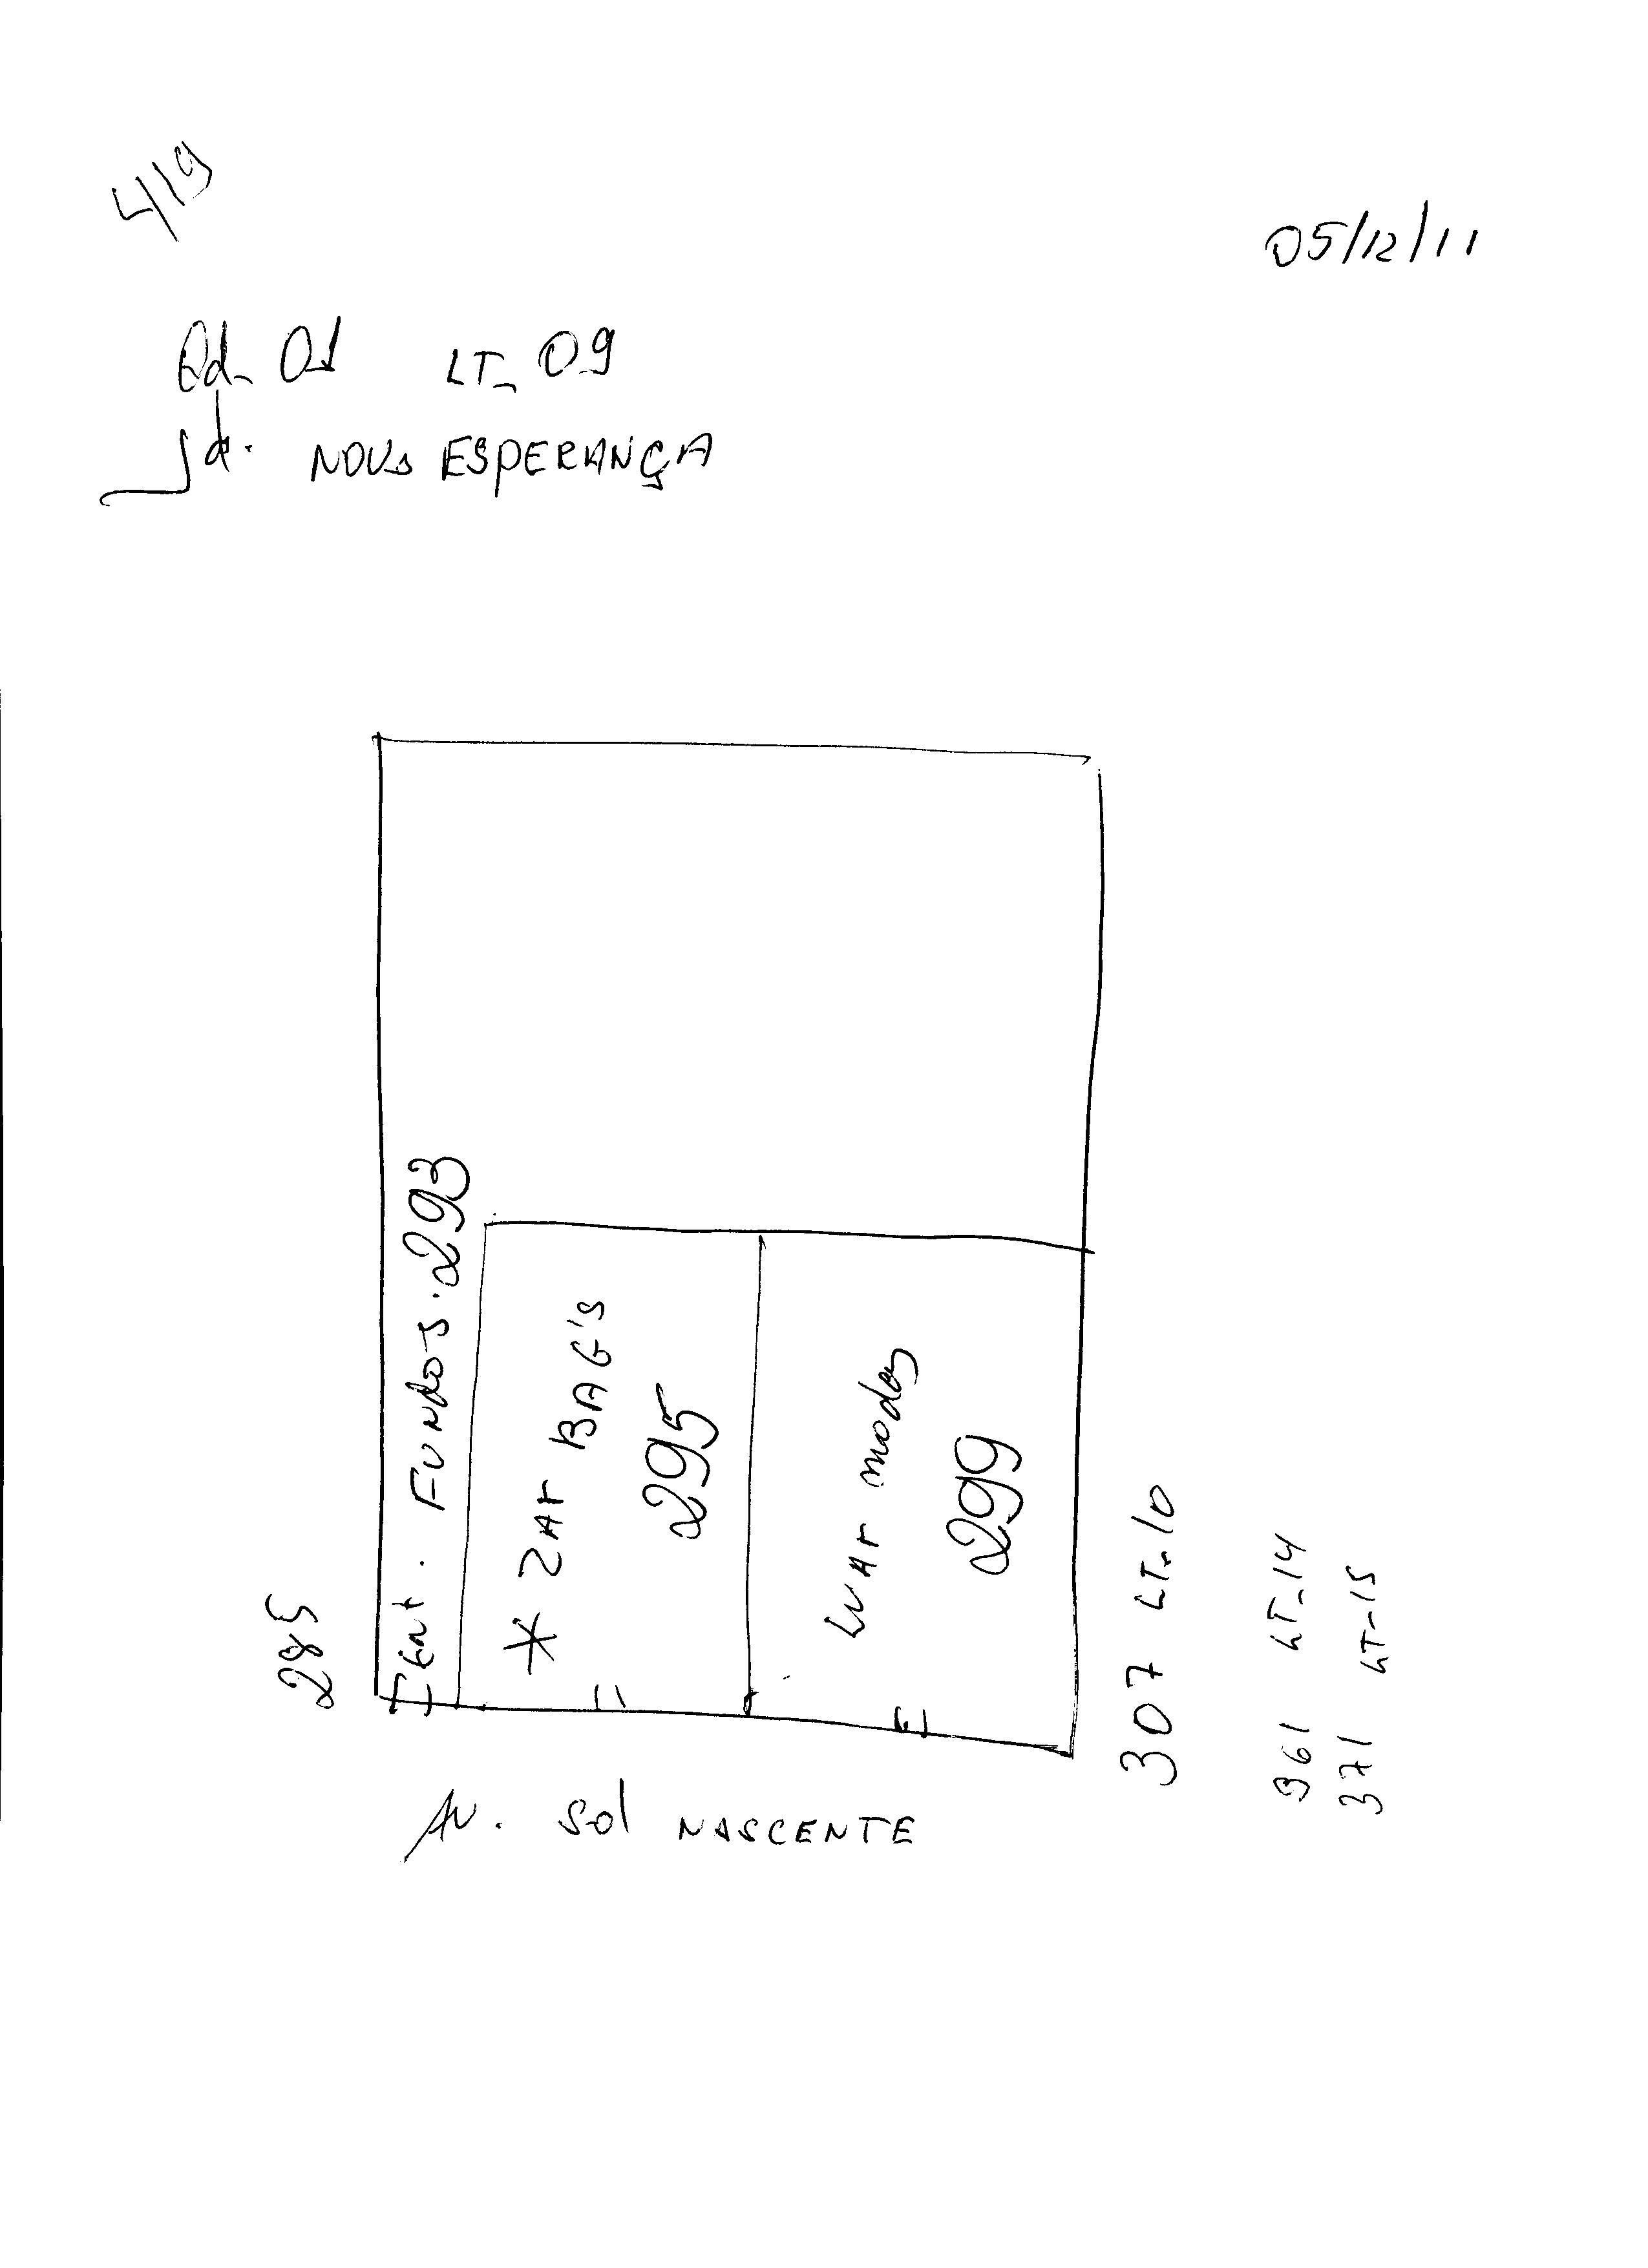 419
05/12/11
Qd_ 01 LT_ 09
Jd. NOVA ESPERANÇA
285
Ent. FUNDOS. 293
* ZAF BAG'S
295
LUAR modas
299
307 LT_10
361 LT_14
371 LT_15
AV. Sol NASCENTE